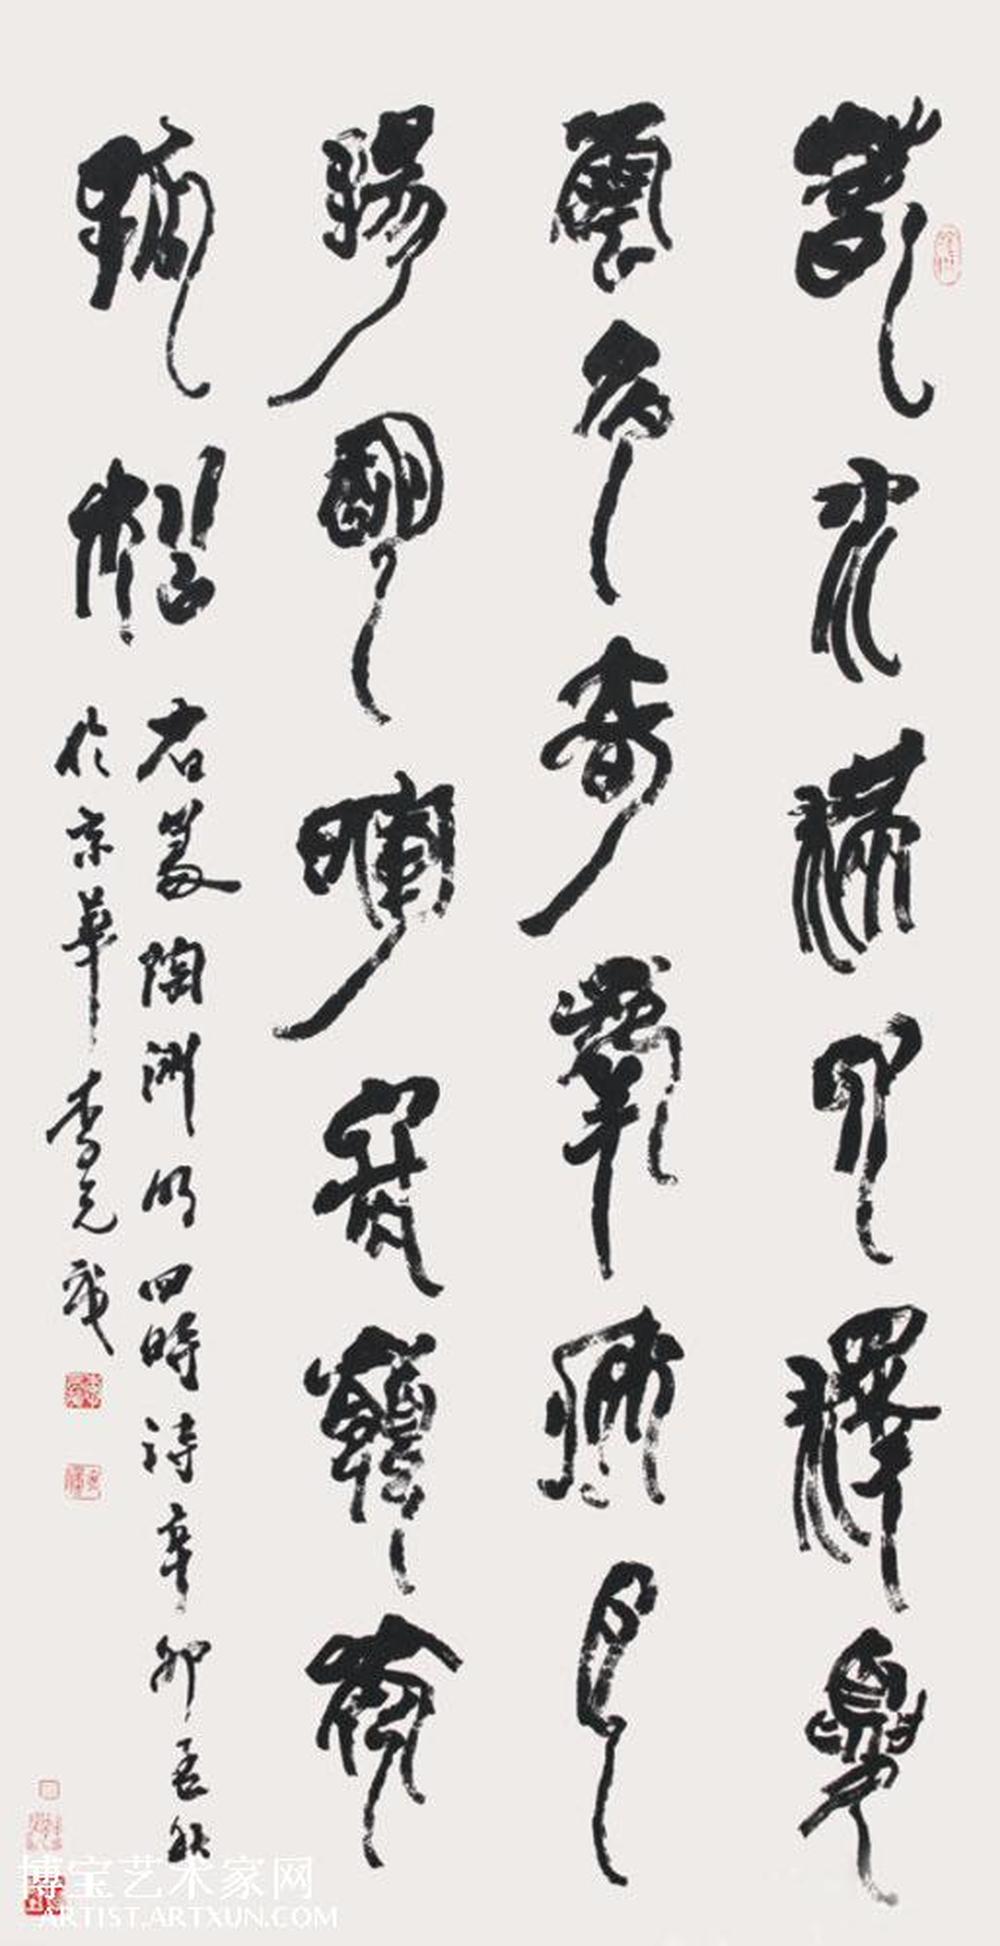 萅水滿四澤夏
雲多奇峯秋月
揚明暉冬嶺秀
孤松
右錄陶渊明四時詩辛卯孟秋
於京華李元戜
博宝艺术家网
ARTIST.ARTXUN.COM